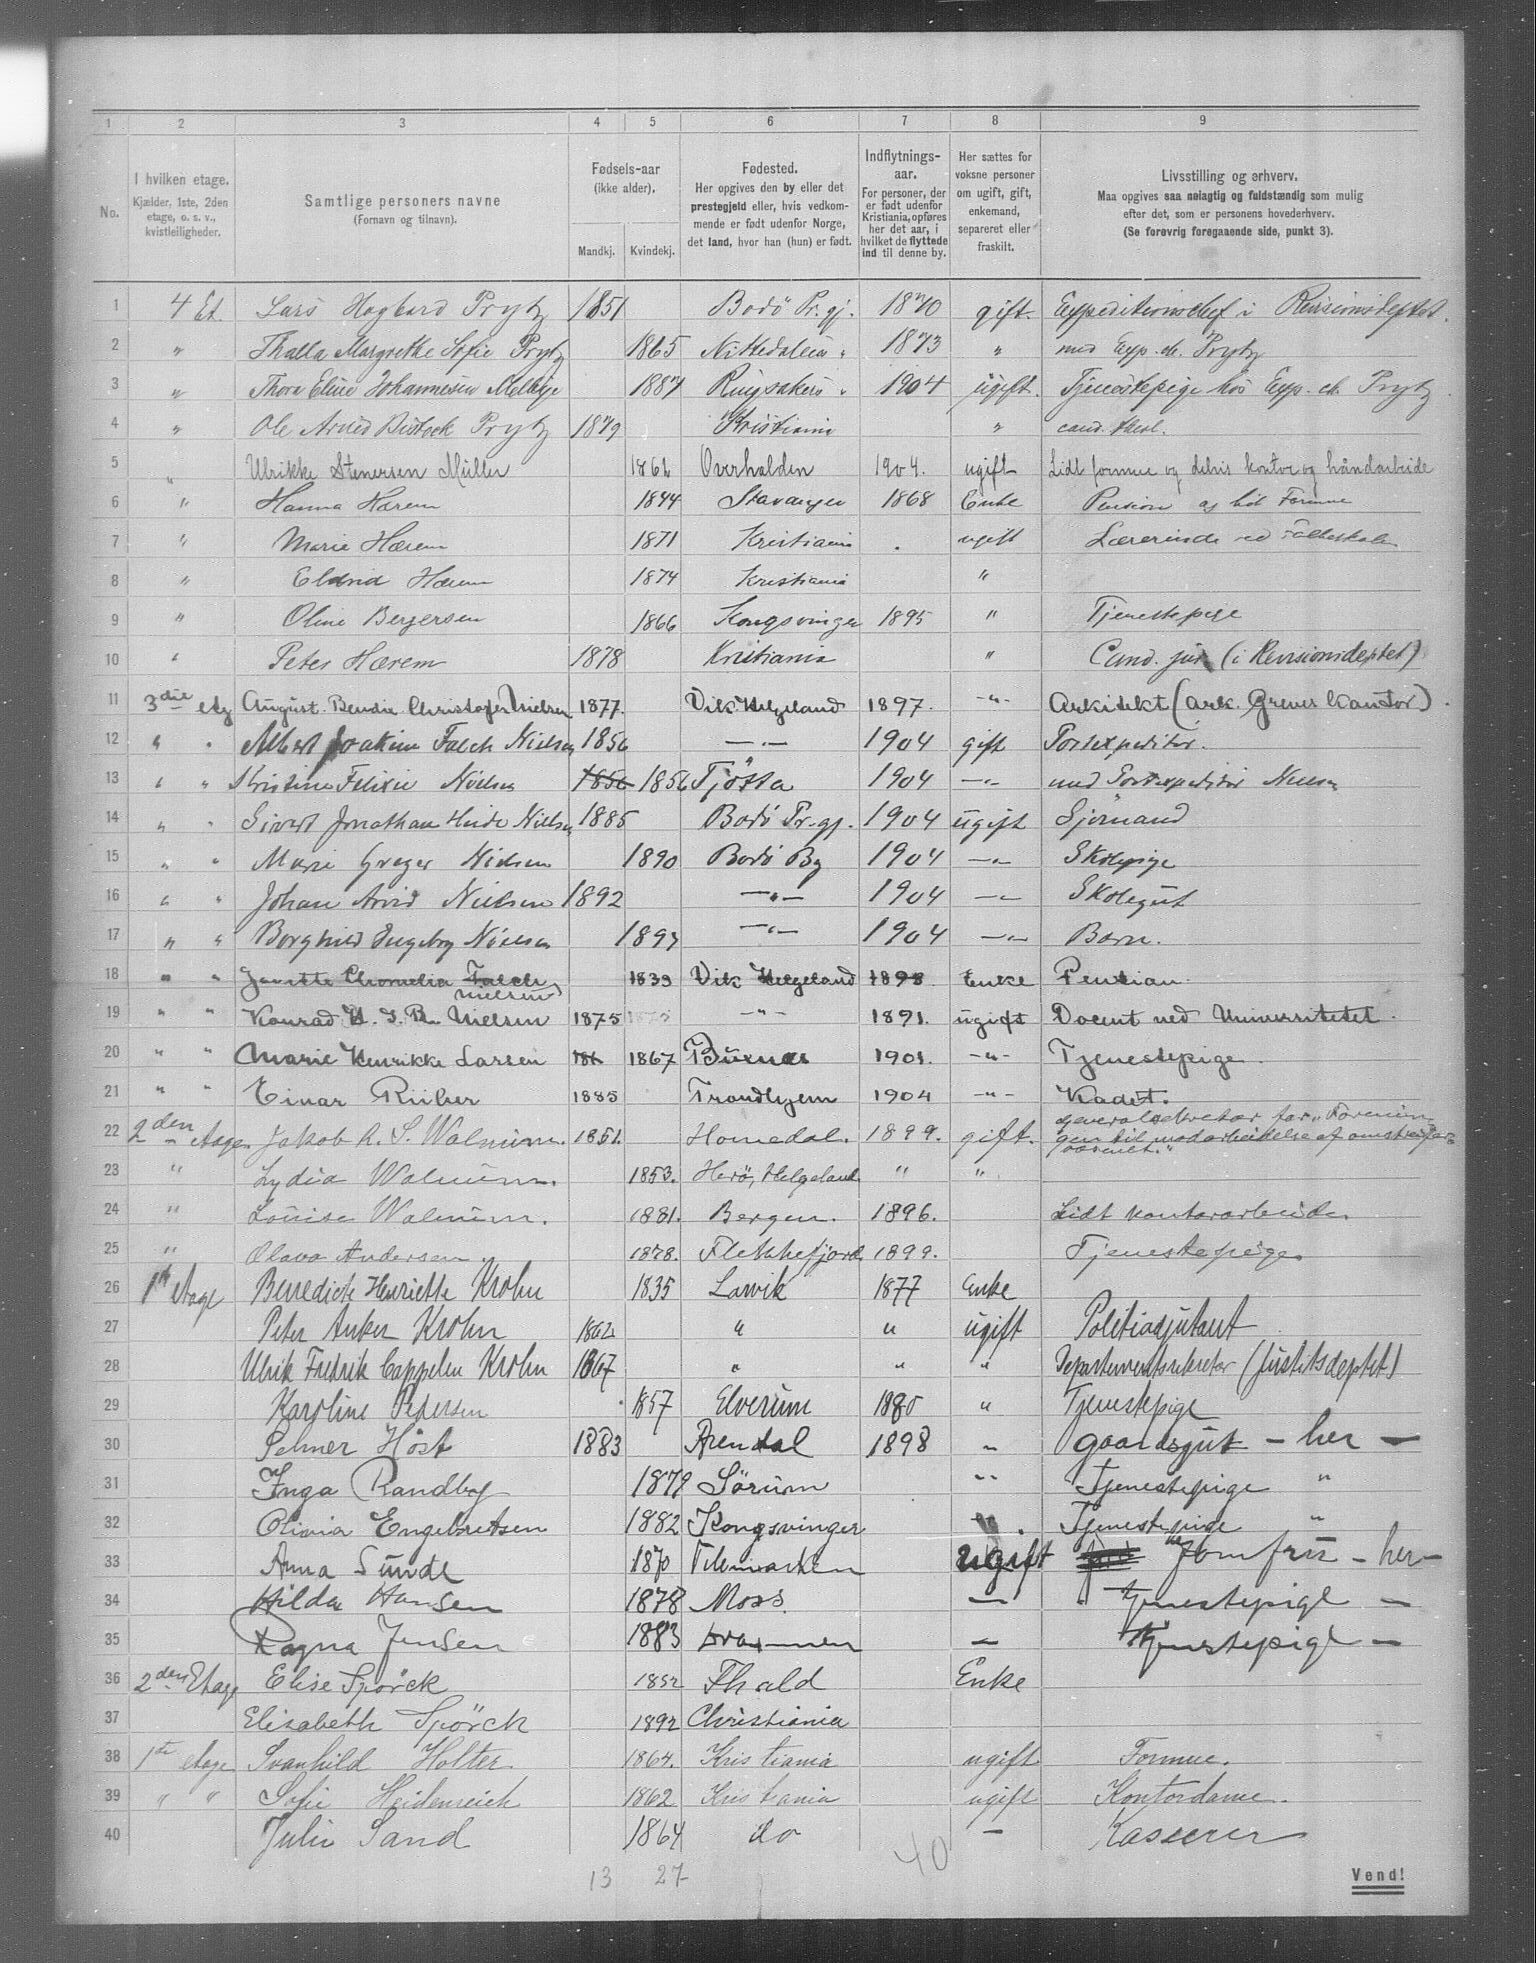 1 2 3 4 5 6 7 8 9
No.
I hvilken etage.
Kjælder, 1ste, 2den
etage, o. s. v.,
kvistleiligheder.
Samtlige personers navne
(Fornavn og tilnavn).
Fødsels-aar
(ikke alder).
Mandkj. Kvindekj.
Fødested.
Her opgives den by eller det
prestegjeld eller, hvis vedkom-
mende er født udenfor Norge,
det land, hvor han (hun) er født.
Indflytnings-
aar.
For personer, der
er født udenfor
Kristiania, opføres
her det aar, i
hvilket de flyttede
ind til denne by.
Her sættes for
voksne personer
om ugift, gift,
enkemand,
separeret eller
fraskilt.
Livsstilling og erhverv.
Maa opgives saa nøiagtig og fuldstændig som mulig
efter det, som er personens hovederhverv.
(Se forøvrig foregaaende side, punkt 3).
1 4 Et. Lars Hagbard Prytz 1851 Bodö Pr.gj. 1870 gift. Expeditionschef i Revisionsdeptet.
2 " Thalla Margrethe Sofie Prytz 1865 Nittedalen " 1873 " med Exp. ch. Prytz
3 " Thora Eline Johannesen Melbye 1887 Ringsakers " 1904 ugift. Tjenestepige hos Exp. ch. Prytz
4 " Ole Arvid Prytz 1879 Kristiania " cand. theol.
5 " Ulrikke Stenersen Müller 1862 Overhalden 1904. ugift Lidt formue og delvis kontor og håndarbeide
6 " Hanna Hærem 1844 Stavanger 1868 Enke Pension og lidt Formue
7 " Marie Hærem 1871 Kristiania . ugift Lærerinde ved Folkeskolen
8 " Eldrid Hærem 1874 Kristiania "
9 " Oline Bergersen 1866 Kongsvinger 1895 " Tjenestepige
10 " Peter Hærem 1878 Kristiania " Cand. jur (i Revisionsdeptet)
11 3die etg August Bendix Christofer Nielsen 1877. Vik Helgeland 1897. -"- Arkitekt (ark. Greves kontor).
12 " " Albert Joakim Falch Nielsen 1856 -"- 1904 gift Postexpeditør.
13 " " Kristine Felixie Nielsen 1856 1856 Tjötta 1904 -"- med Postexpeditör Nielsen
14 " " Sivert Jonathan Heide Nielsen 1885 Bodö Pr.gj. 1904 ugift Sjömand
15 " " Marie Greger Nielsen 1890 Bodö By 1904 -"- Skolepige
16 " " Johan Arvid Nielsen 1892 -"- 1904 -"- Skolegut
17 " " Borghild Ingeborg Nielsen 1897 -"- 1904 -"- Barn.
18 " " Falch Nielsen 1833 Vik Helgeland 1898 Enke Pension
19 " " Konrad H. J. R. Nielsen 1875 1875 -"- 1891. ugift Docent ved Universitetet.
20 " " Marie Henrikke Larsen 186 1867 Bürnes 1901. -"- Tjenestepige.
21 " " Einar Riiber 1885 Trondhjem 1904 -"- Kadet.
22 2den etage Jakob R. S. Walnum. 1851. Homedal. 1899. gift. generalsekretær for "Forenin-
gen til modarbeidelse af omstreifer-
væsenet."
23 " Lydia Walnum. 1853. Herö, Helgeland " "
24 " Louise Walnum. 1881. Bergen. 1896. Lidt kontorarbeide
25 " Olava Andersen 1878. Flekkefjord 1899. Tjenestepige
26 1ste etage Benedicte Henriette Krohn 1835 Larvik 1877 Enke
27 Peter Anker Krohn 1862 " " ugift Politiadjutant
28 Ulrik Fredrik Cappelen Krohn 1867 " " " Departementssekretær (Justitsdeptet)
29 Karoline Pedersen 1857 Elverum 1880 " Tjenestepige
30 Pelmer Höst 1883 Arendal 1898 " gaardsgut - her -
31 Inga Randbøl 1879 Sörum " Tjenestepige "
32 Olivia Engebretsen 1882 Kongsvinger " Tjenestepige "
33 Anna Sunde 1870 Telemarken ugift Jomfru - her -
34 Hilda Hansen 1878 Moss. - tjenestepige -
35 Ragna Jensen 1883 Drammen - tjenestepige -
36 2den Etage Elise Spörck 1852 Fhald Enke
37 Elisabeth Spörck 1892 Christiania
38 1ste etage Svanhild Holter 1864. Kristiania ugift Formue.
39 " " Sofie Heidenreich 1862 Kristiania ugift Kontordame.
40 Julie Sand 1864 do - Kasserer
13 27 40
Vend!